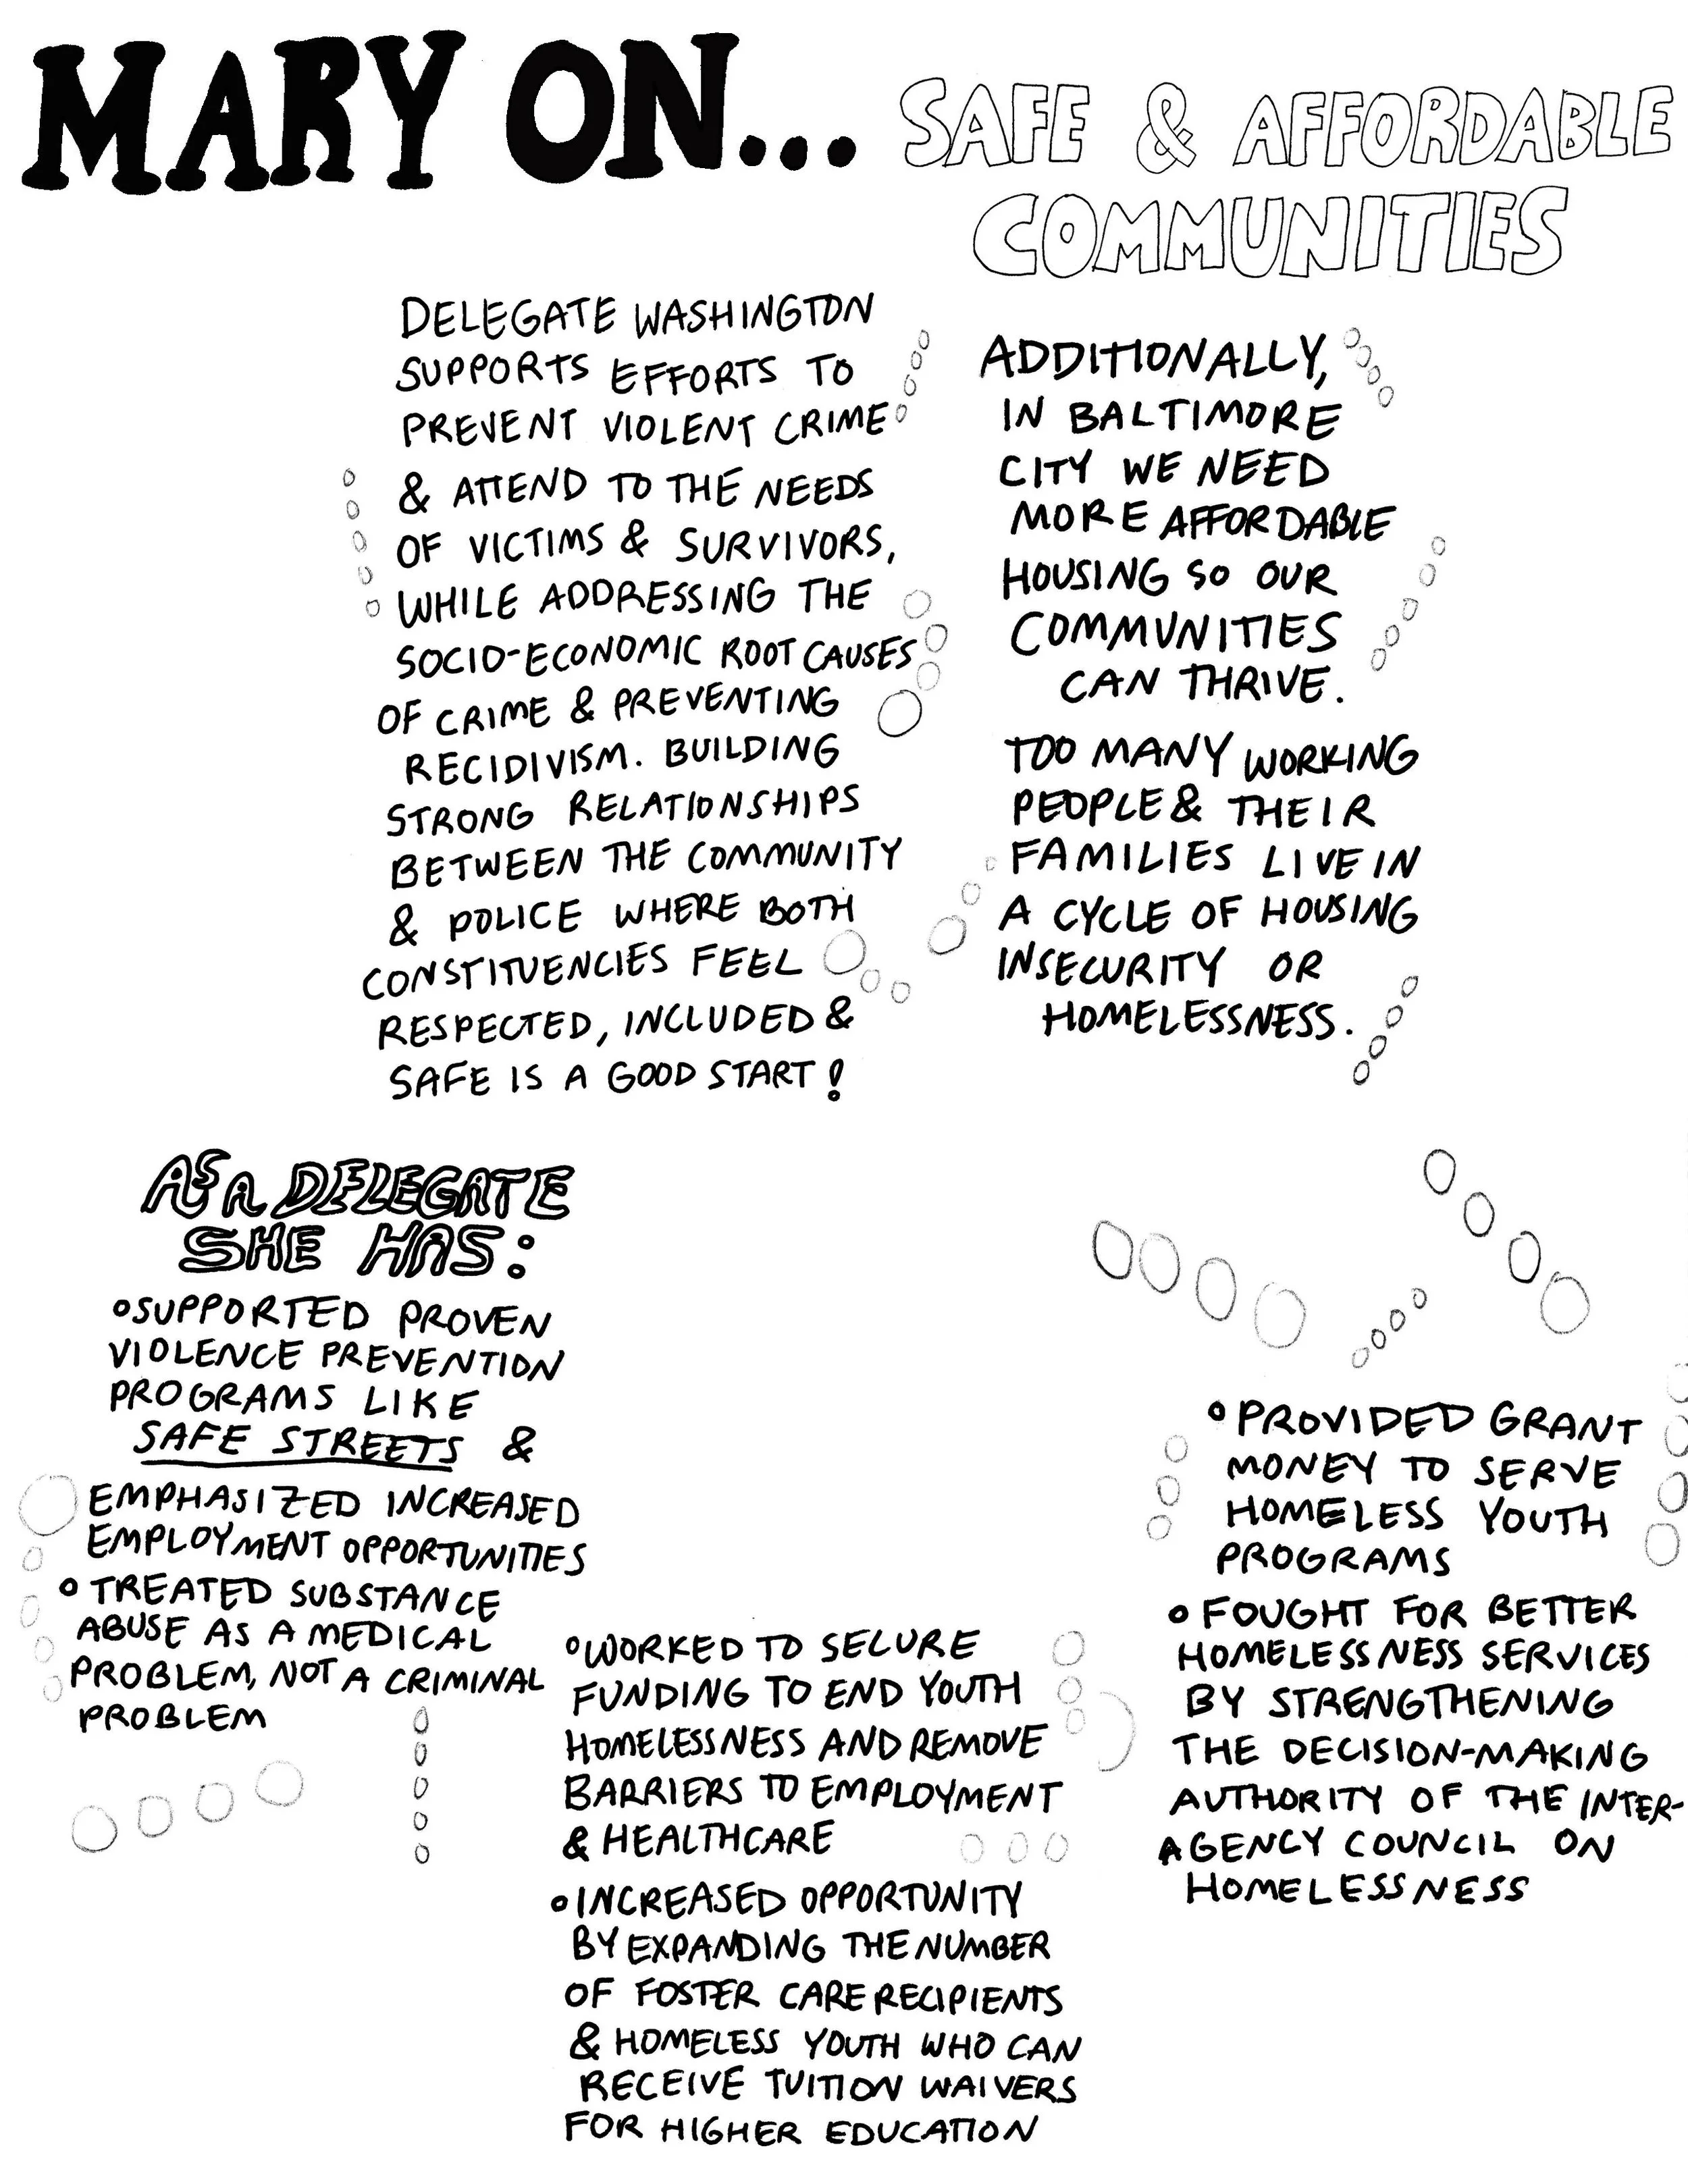 MARY ON...
SAFE & AFFORDABLE
COMMUNITIES
DELEGATE WASHINGTON
SUPPORTS EFFORTS TO
PREVENT VIOLENT CRIME
& ATTEND TO THE NEEDS
OF VICTIMS & SURVIVORS,
WHILE ADDRESSING THE
SOCIO-ECONOMIC ROOT CAUSES
OF CRIME & PREVENTING
RECIDIVISM. BUILDING
STRONG RELATIONSHIPS
BETWEEN THE COMMUNITY
& POLICE WHERE BOTH
CONSTITUENCIES FEEL
RESPECTED, INCLUDED &
SAFE IS A GOOD START!
ADDITIONALLY,
IN BALTIMORE
CITY WE NEED
MORE AFFORDABLE
HOUSING SO OUR
COMMUNITIES
CAN THRIVE.
TOO MANY WORKING
PEOPLE & THEIR
FAMILIES LIVE IN
A CYCLE OF HOUSING
INSECURITY OR
HOMELESSNESS.
AS A DELEGATE
SHE HAS:
°SUPPORTED PROVEN
VIOLENCE PREVENTION
PROGRAMS LIKE
SAFE STREETS &
EMPHASIZED INCREASED
EMPLOYMENT OPPORTUNITIES
° TREATED SUBSTANCE
ABUSE AS A MEDICAL
PROBLEM, NOT A CRIMINAL
PROBLEM
°WORKED TO SECURE
FUNDING TO END YOUTH
HOMELESSNESS AND REMOVE
BARRIERS TO EMPLOYMENT
& HEALTHCARE
°INCREASED OPPORTUNITY
BY EXPANDING THE NUMBER
OF FOSTER CARE RECIPIENTS
& HOMELESS YOUTH WHO CAN
RECEIVE TUITION WAIVERS
FOR HIGHER EDUCATION
°PROVIDED GRANT
MONEY TO SERVE
HOMELESS YOUTH
PROGRAMS
° FOUGHT FOR BETTER
HOMELESSNESS SERVICES
BY STRENGTHENING
THE DECISION-MAKING
AUTHORITY OF THE INTER-
AGENCY COUNCIL ON
HOMELESSNESS